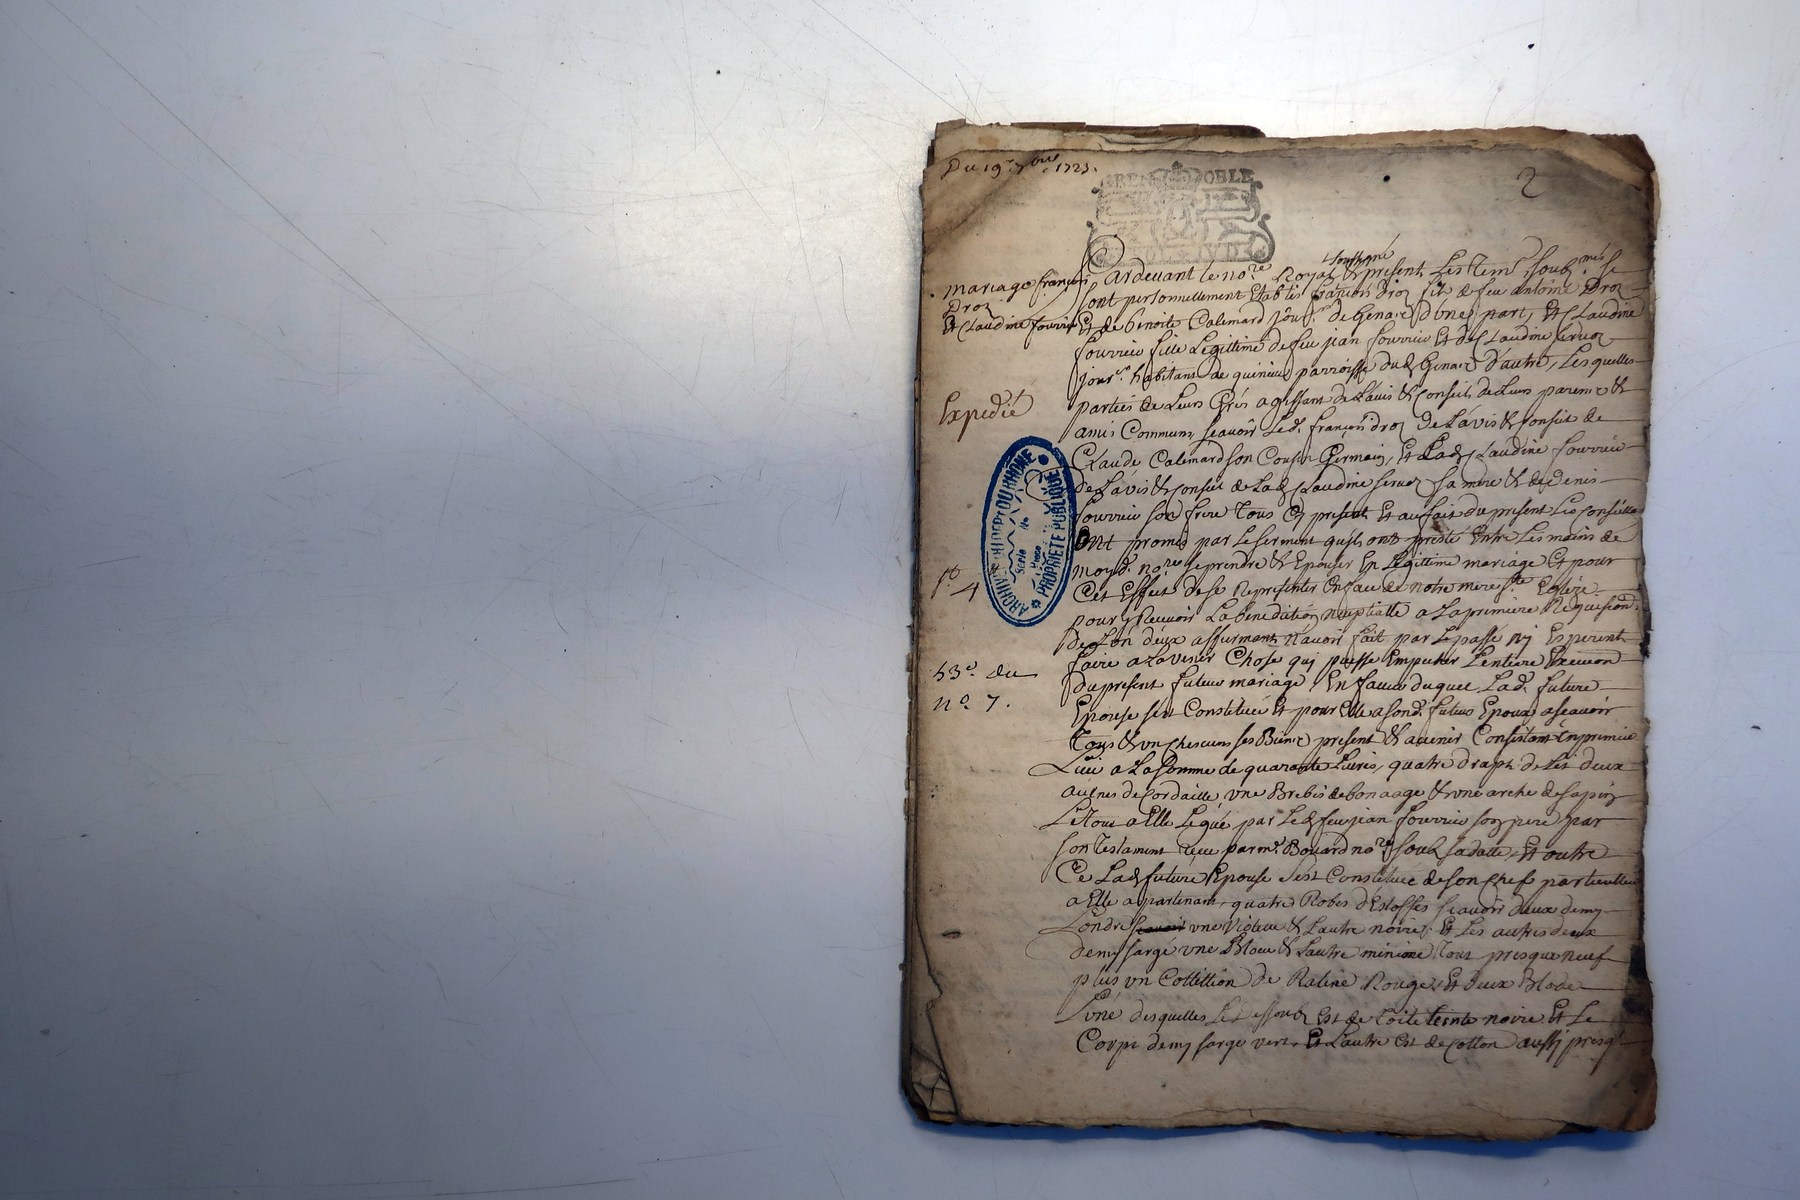 Du 19e 7bre 1723.
GRENOBLE
2
mariage françois
Droz
Et Claudine fourrie
Expedié
ARCHIVES DU DEPT DU RHONE
Serie No
Piece
PROPRIETE PUBLIQUE
53e du
no 7.
Pardevant le nore Royal soubsigné & present Les tem soubnés se
sont personnellement Etablis françois Droz fils de feu antoine Droz
Et de benoite Calemard d'une part, Et Claudine
fourrie fille Legittime de feu jean fourrie Et de Claudine
jour habitans de parroisse dud d'autre, Lesquelles
parties de Leurs Grés agissant de L'avis & Conseil de Leurs parens &
amis Communs, scavoir Led. françois droz De L'avis & Conseil de
Claude Calemard son Cousin Germain, Et Lad Claudine fourrie
de L'avis & Conseil de Lad Claudine sa mere & de Denis
fourrie son frere tous Cy present Et au fait du present Les Conseillant
Ont promis par Le serment quils ont presté Entre Les mains de
moyd. nore se prendre & Epouser En Legittime mariage Et pour
Cet Effect de se Representer En face de notre mere ste Eglize
pour y Recevoir La benediction nuptialle a La premiere Requisition
de L'un deux affirmant n'avoir fait par Le passé ny Esperent
faire a L'avenir Chose qui puisse Empecher L'entiere Execution
du present futeur mariage, En faveur duquel Lad. future
Epouse s'est Constituée Et pour Elle a sond. futeur Epoux a scavoir
tous & un chescuns ses Biens present & avenir Consistant En premier
Lieu a La somme de quarante Livres, quatre draps de Lit deux
aulnes de Cordaille une Brebis de bon aage & une arche de sapin
Le tout a Elle Legué par Led feu jean fourrie son pere par
son Testament receu par me. Bouard nore soub sa datte, Et outre
Ce Lad future Epouse s'est Constituée de son Chef particulier
a Elle apartenant quatre Robes d'Estoffes scavoir deux demy
Londre scavoir une Violette & L'autre noire, Et Les autres deux
demy sarge une Bleue & L'autre minime tout presque neuf
plus un Cottillion de Ratine Rouge, Et deux Blode
L'une desquelles Le dessoub Est de toile teinte noire Et Le
Corps demy sarge vert, Et L'autre Est de Cotton aussy presq